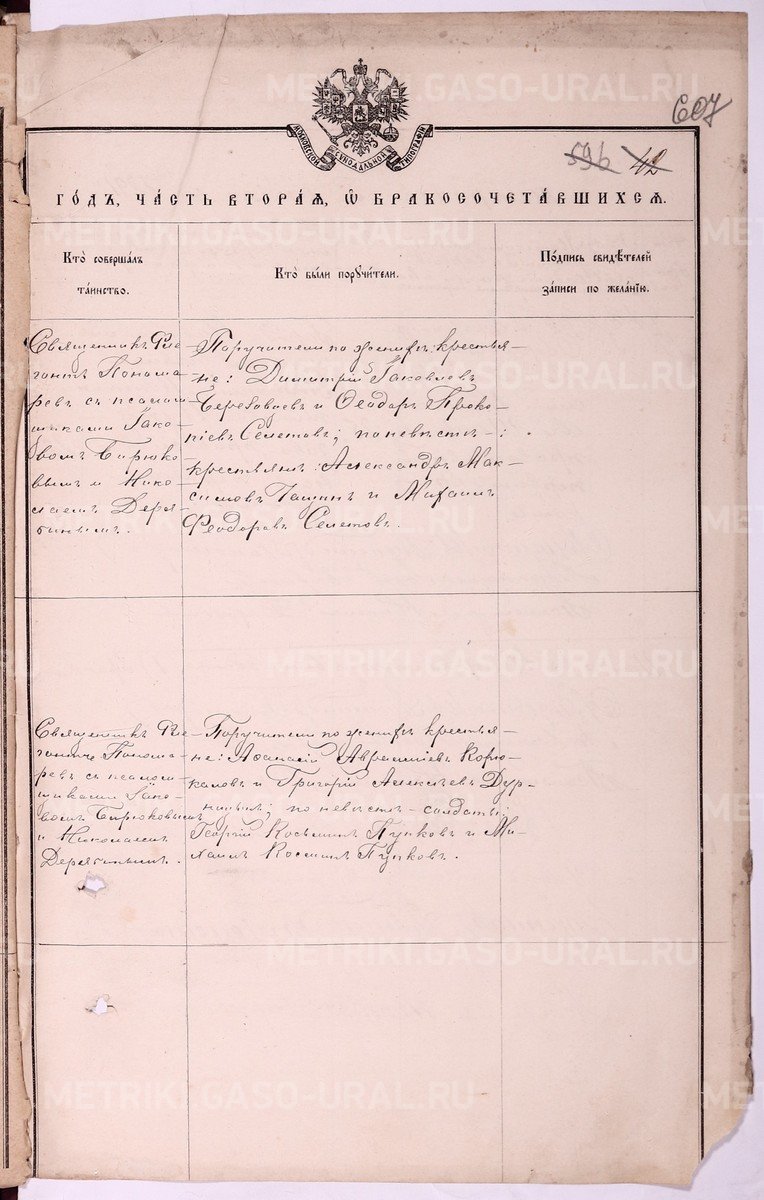 607
596 42
МОСКОВСКОЙ СѴНОДАЛЬНОЙ ТИПОГРАФІИ
ГО́ДЪ, ЧА́СТЬ ВТОРА́Я, Ѡ҆ БРАКОСОЧЕТА́ВШИХСЯ.
Кто̀ соверша́лъ
та́инство.
Кто̀ бы́ли поручи́тели.
По́дпись свидѣ́телей
за́писи по жела́нїю.
Священникъ Фле-
гонтъ Понома-
ревъ съ псалом-
щиками Іако-
вомъ Бирюко-
вымъ и Нико-
лаемъ Деря-
бинымъ.
Поручители по женихѣ: крестья-
не: Димитрій Іаковлевъ
и Ѳеодоръ Проко-
піевъ Селетовъ; по невѣстѣ:
крестьяне: Александръ Мак-
симовъ и Михаилъ
Феодоровъ Селетовъ.
Священникъ Фле-
гонтъ Понома-
ревъ съ псалом-
щиками Іако-
вомъ Бирюковымъ
и Николаемъ
Дерябинымъ.
Поручители по женихѣ крестья-
не: Аѳанасій Авраміевъ Корю-
каловъ и Григорій Алексѣевъ Дур-
нинъ; по невѣстѣ – солдаты:
Георгій Косьминъ Пупковъ и Ми-
хаилъ Косминъ Пупковъ.
METRIKI.GASO-URAL.RU